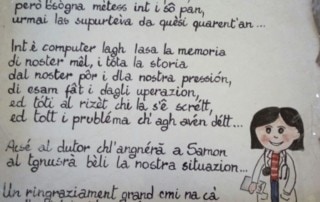 però bṡogna mètess int i sô pan,
urmai las supurteiva da quèsi quarent'an ...
Int è computer lagh lasa la memoria
di noster mêl, i tôta la storia
dal noster pôr i dla nostra pressión,
di esam fât i dagli uperazion,
ed tôti al rizèt chi la s'ê scrètt,
ed tott i probléma ch'agh aven dètt ...
Acsé al dutor chl'angnérà a Samon
al tgnusrà bèli la nostra situazion ...
Un ringraziament grand cmi na cà